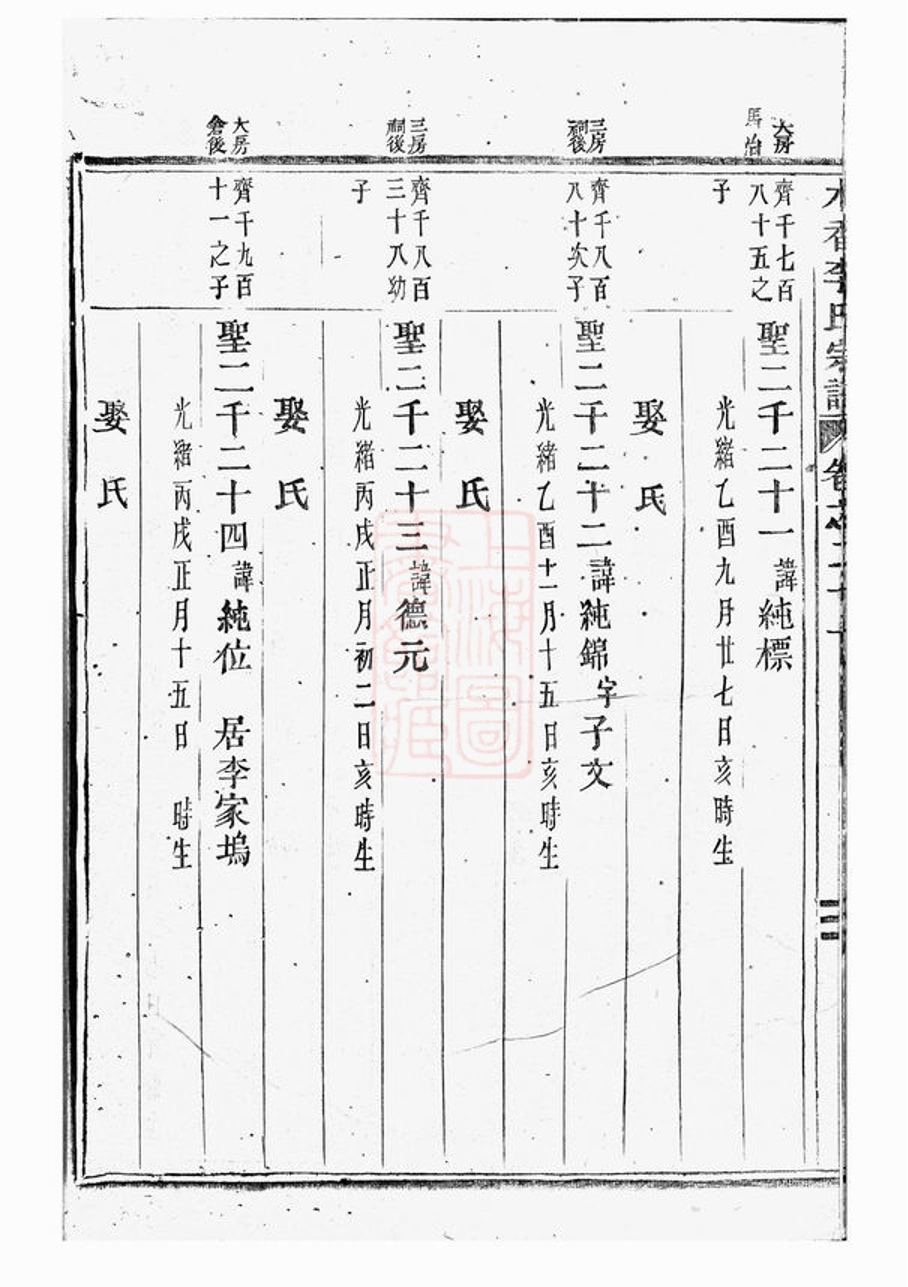 李氏宗譜
大房
馬冶
齊千七百
八十五之
子
聖二千二十一諱純標
光緒乙酉九月廿七日亥時生
娶氏
三房
祠後
齊千八百
八十次子
聖二千二十二諱純錦字子文
光緒乙酉十一月十五日亥時生
娶氏
三房
祠後
齊千八百
三十八幼
子
聖二千二十三諱德元
光緒丙戌正月初二日亥時生
娶氏
大房
倉後
齊千九百
十一之子
聖二千二十四諱純位 居李家塢
光緒丙戌正月十五日 時生
娶氏
上海圖